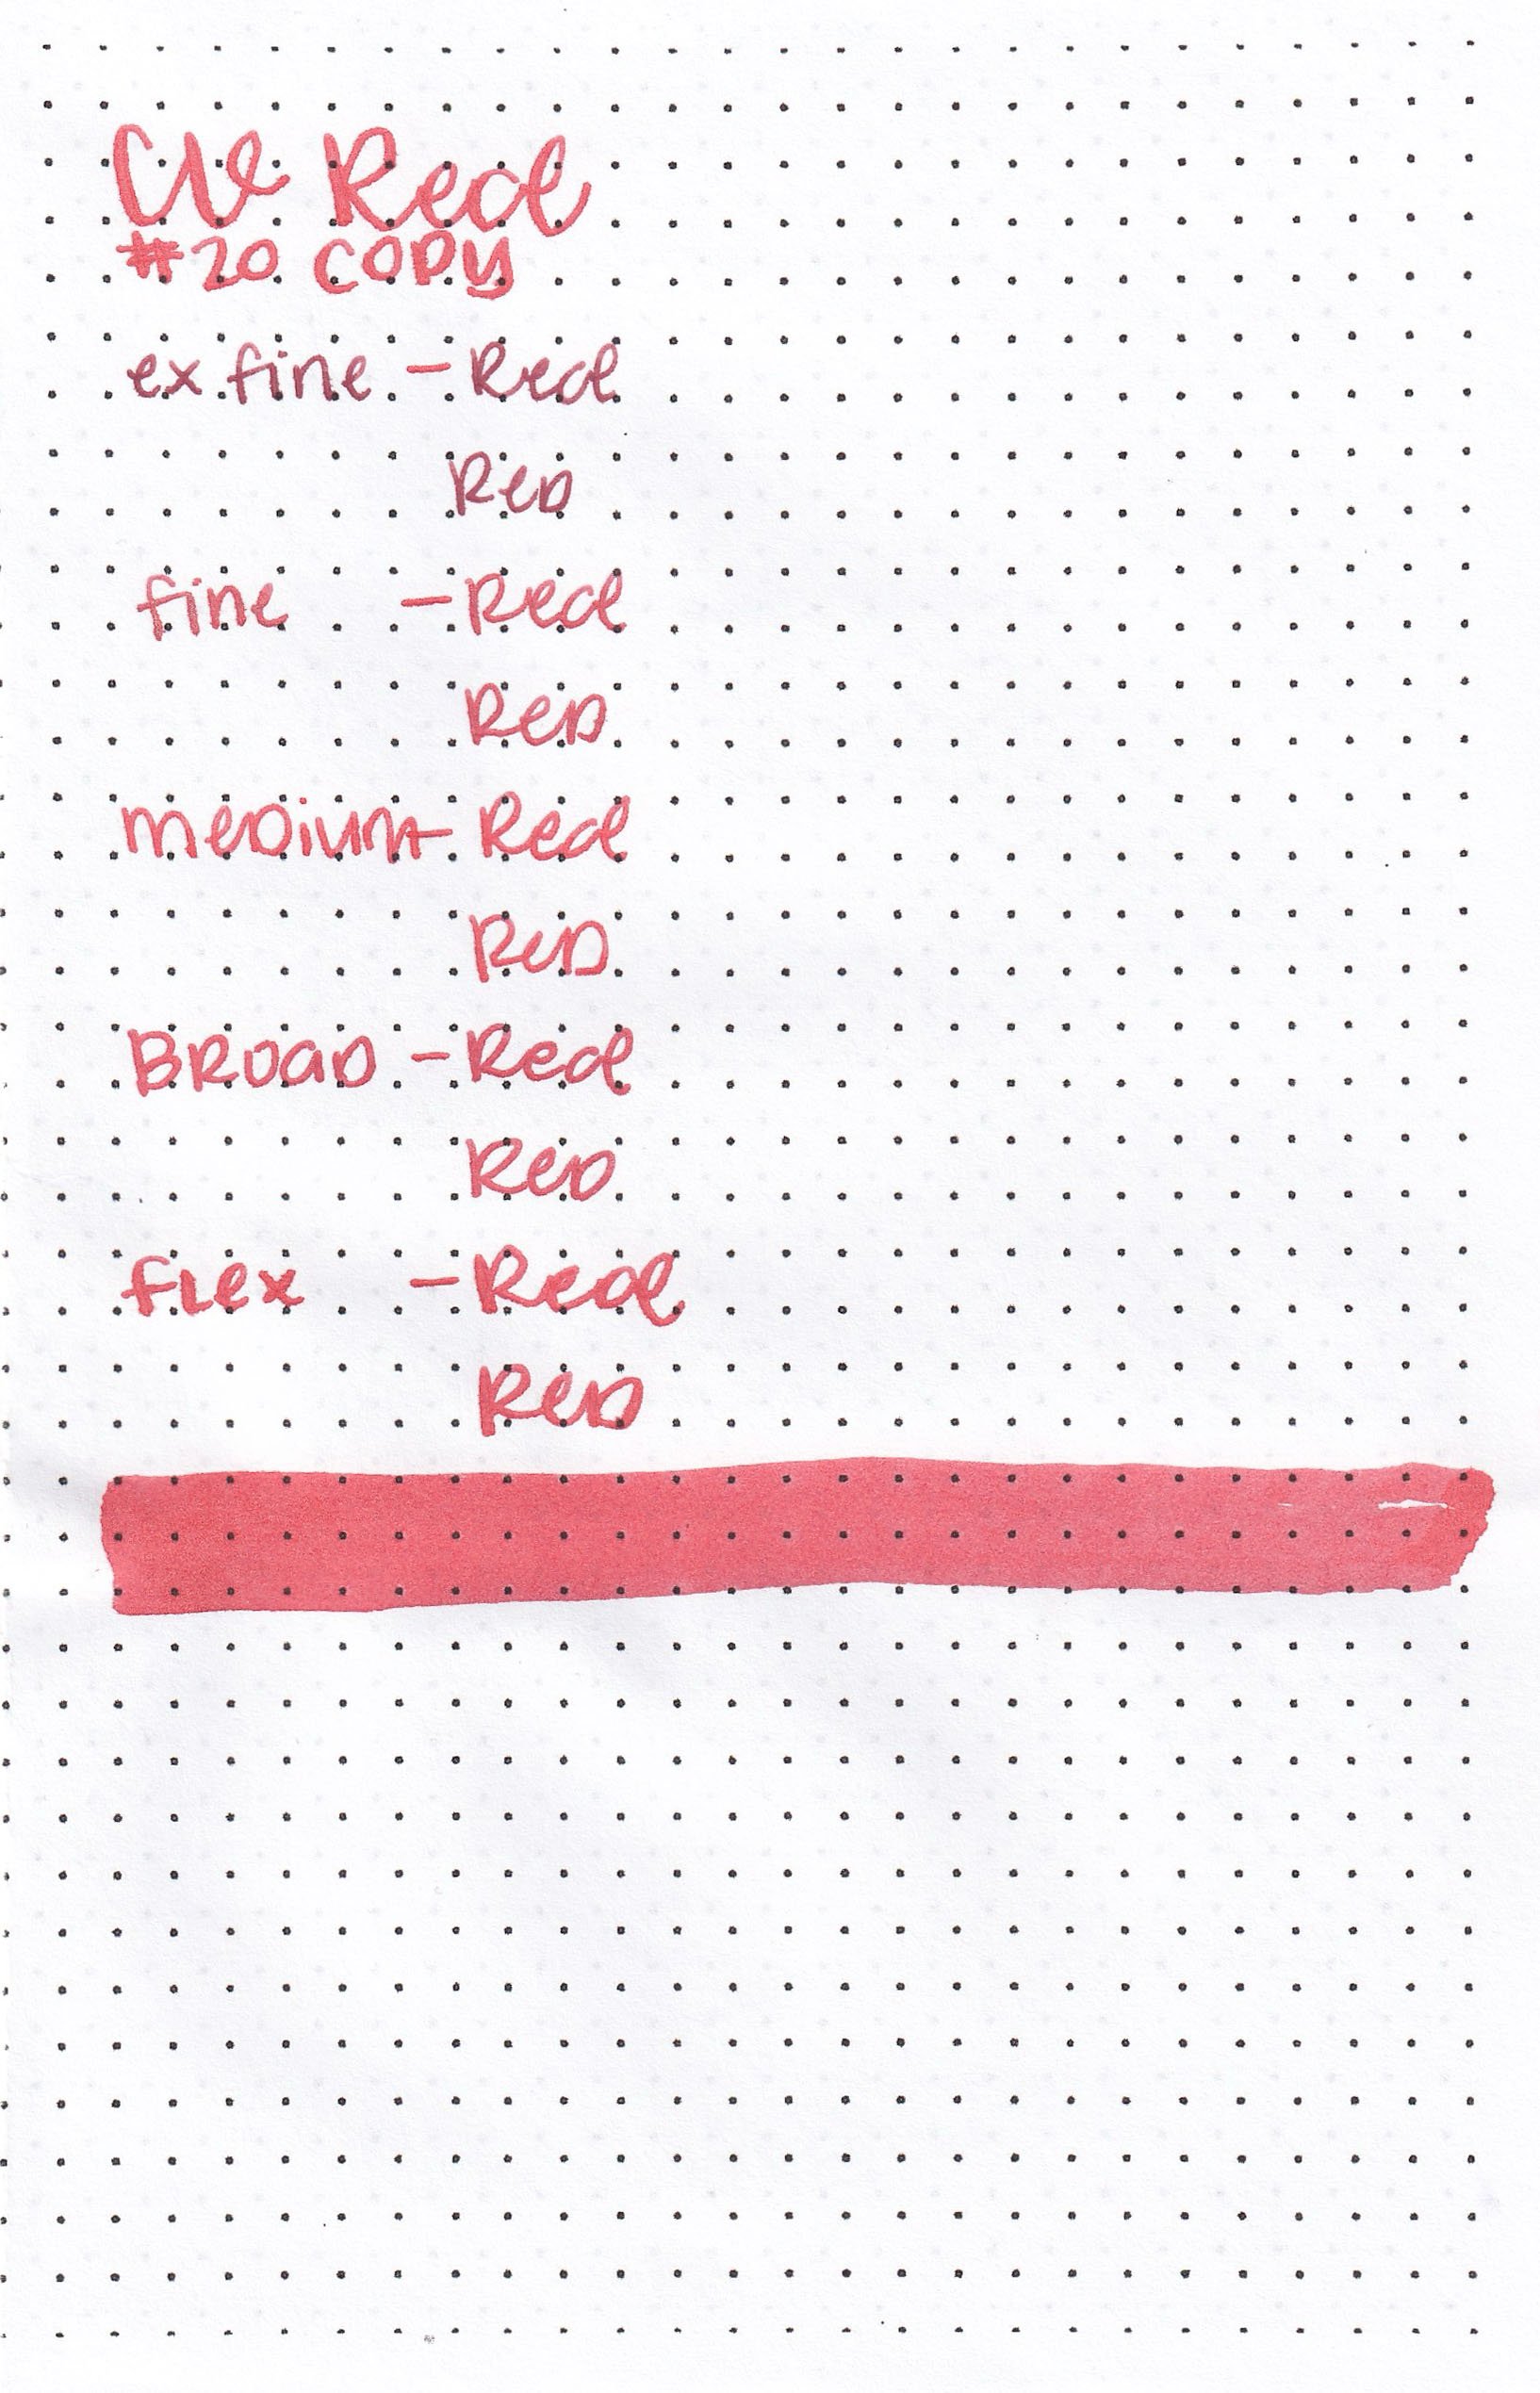 Red
#20 COPY
ex. fine - Red
Red
fine - Red
Red
medium - Red
Red
BROAD - Red
Red
flex - Red
Red